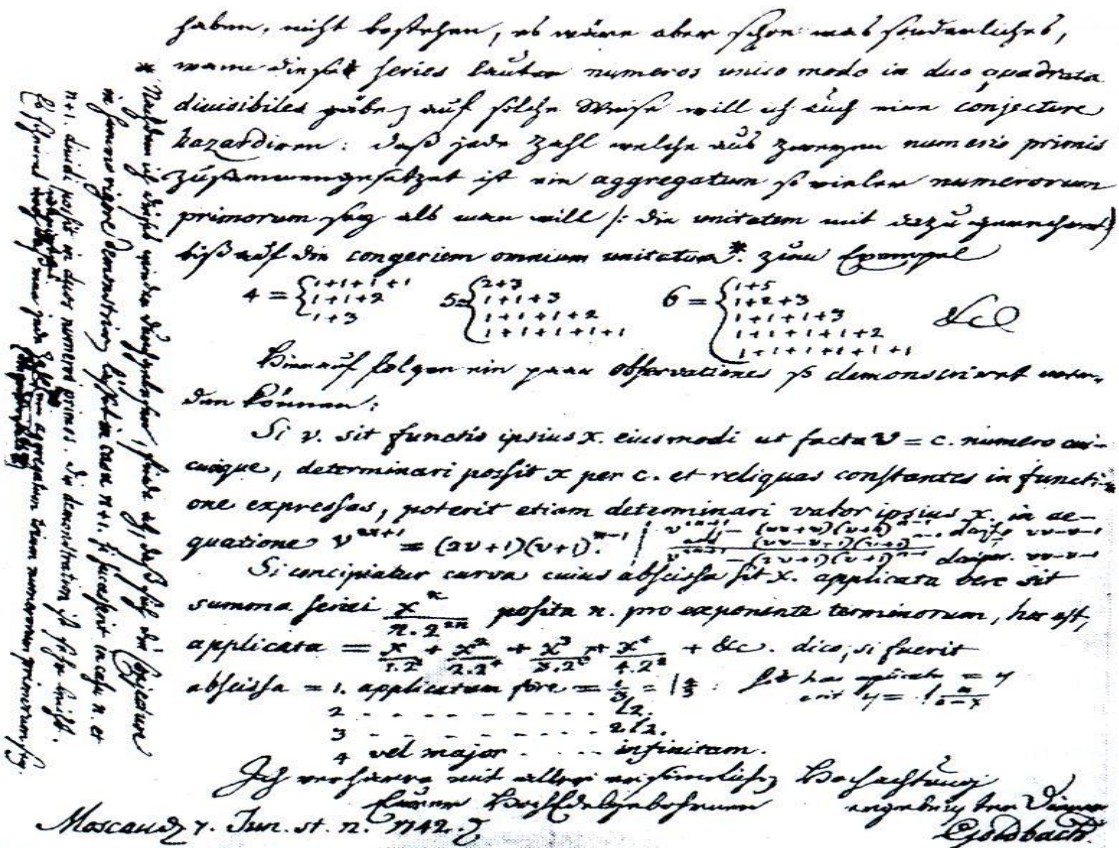 haben, nicht bestehen, es wäre aber schon was sonderliches,
wann diese series lauter numeros unico modo in duo quadrata
divisibiles gäbe; auf solche Weise will ich auch eine conjecture
hazardiren: daß jede Zahl welche aus zweyen numeris primis
zusammengesetzet ist ein aggregatum so vieler numerorum
primorum sey als man will (: die unitatem mit dazu gerechnet)
biß auf die congeriem omnium unitatum*. zum Exempel
4 = { 1+1+1+1
1+1+2
1+3
5 = { 2+3
1+1+3
1+1+1+2
1+1+1+1+1
6 = { 1+5
1+2+3
1+1+1+3
1+1+1+1+2
1+1+1+1+1+1
&c
Hierauf folgen ein paar observationes so demonstriret wer-
den können:
Si v. sit functio ipsius x. eiusmodi ut facta v = c. numero cui-
cunque, determinari possit x per c. et reliquas constantes in functi-
one expressas, poterit etiam determinari valor ipsius x. in ae-
quatione v^{2x+1} = (2v+1)(v+1)^{n-1}.
Si concipiatur curva cuius abscissa sit x. applicata vero sit
summa seriei x^n/(n.2^{2n}) posita n. pro exponente terminorum, hoc est,
applicata = x/(1.2²) + x²/(2.2⁴) + x³/(3.2⁶) + x⁴/(4.2⁸) + &c. dico, si fuerit
abscissa = 1. applicatam fore = = l 4/3
2 - - - - - - - l2.
3 - - - - - - - 2l2.
4 vel major - - - infinitam.
Ich verharre mit aller Hochachtung
Eurer HochEdelgebohrnen ergebenster Diener
Goldbach.
Moscau 7. Jun. st. n. 1742.
* Nachdem ich dieses wieder durchgelesen, finde ich, daß sich die conjecture
in summo rigore demonstriren läßet in casu n+1. si successerit in casu n. et
n+1. dividi possit in duos numeros primos. Die demonstration ist sehr leicht.
Es scheinet daß eine jede Zahl ein aggregatum trium numerorum primorum sey.